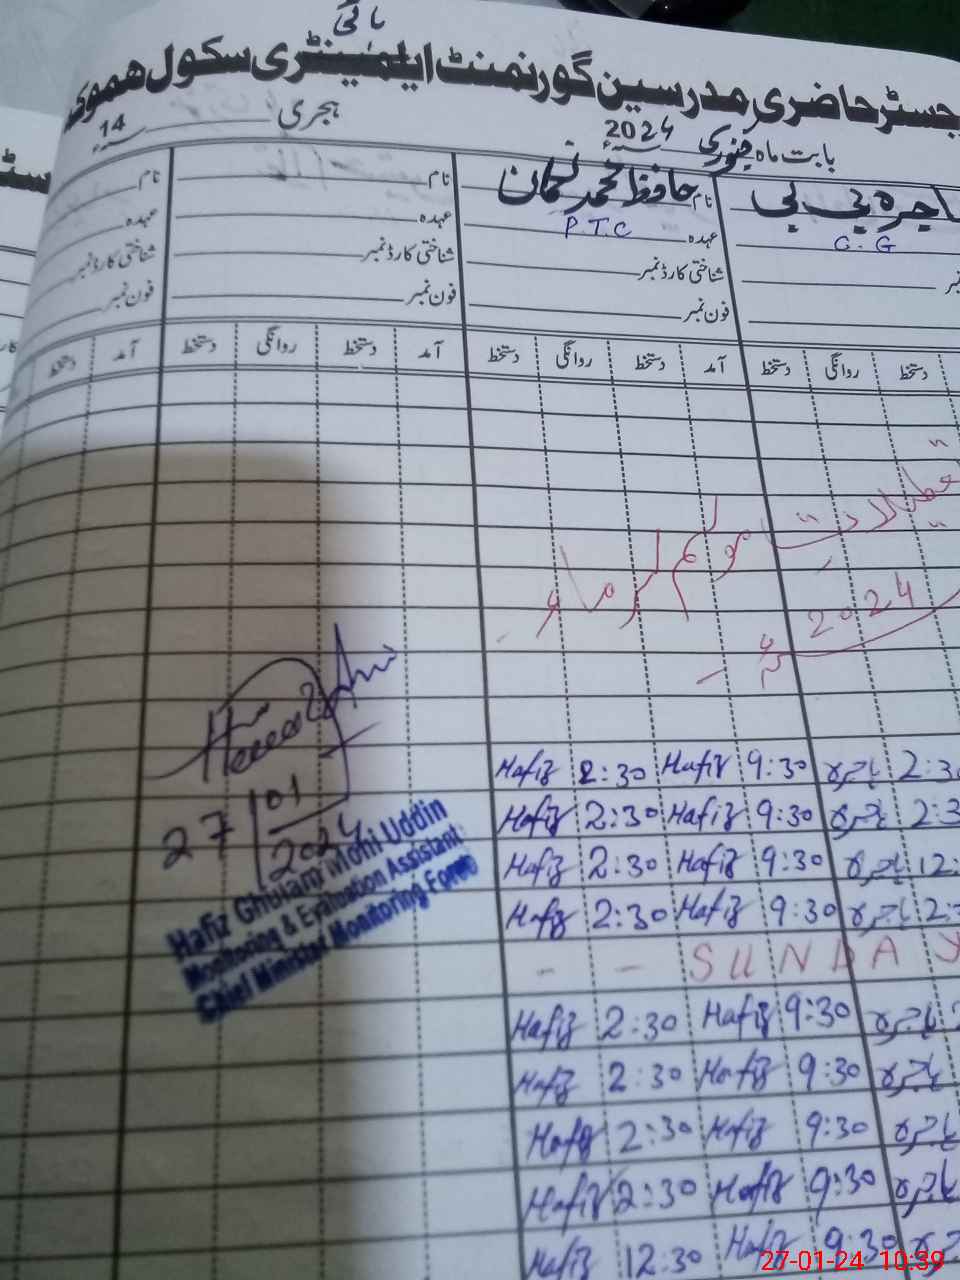 ہائی
رجسٹر حاضری مدرسین گورنمنٹ ایلیمنٹری سکول ھموکہ
بابت ماہ جنوری 2024ء ہجری 14
نام حافظ محمد نعمان نام نام
عہدہ C.G عہدہ P.T.C عہدہ عہدہ
نمبر شناختی کارڈ نمبر شناختی کارڈ نمبر شناختی کارڈ نمبر
فون نمبر فون نمبر فون نمبر
دستخط روانگی دستخط آمد دستخط روانگی دستخط آمد دستخط روانگی دستخط آمد دستخط
تعطیلات موسم سرما
2024ء
Hafiz 2:30 Hafiz 9:30 ہاجرہ
Hafiz 2:30 Hafiz 9:30 ہاجرہ
Hafiz 2:30 Hafiz 9:30 ہاجرہ 12:
Hafiz 2:30 Hafiz 9:30 ہاجرہ
- - SUNDAY
Hafiz 2:30 Hafiz 9:30 ہاجرہ
Hafiz 2:30 Hafiz 9:30 ہاجرہ
Hafiz 2:30 Hafiz 9:30 ہاجرہ
Hafiz 2:30 Hafiz 9:30 ہاجرہ
Hafiz 12:30 Hafiz 9:30 ہاجرہ
27/01/2024
Hafiz Ghulam Mohi Uddin
Monitoring & Evaluation Assistant
Chief Minister Monitoring Force
27-01-24 10:39